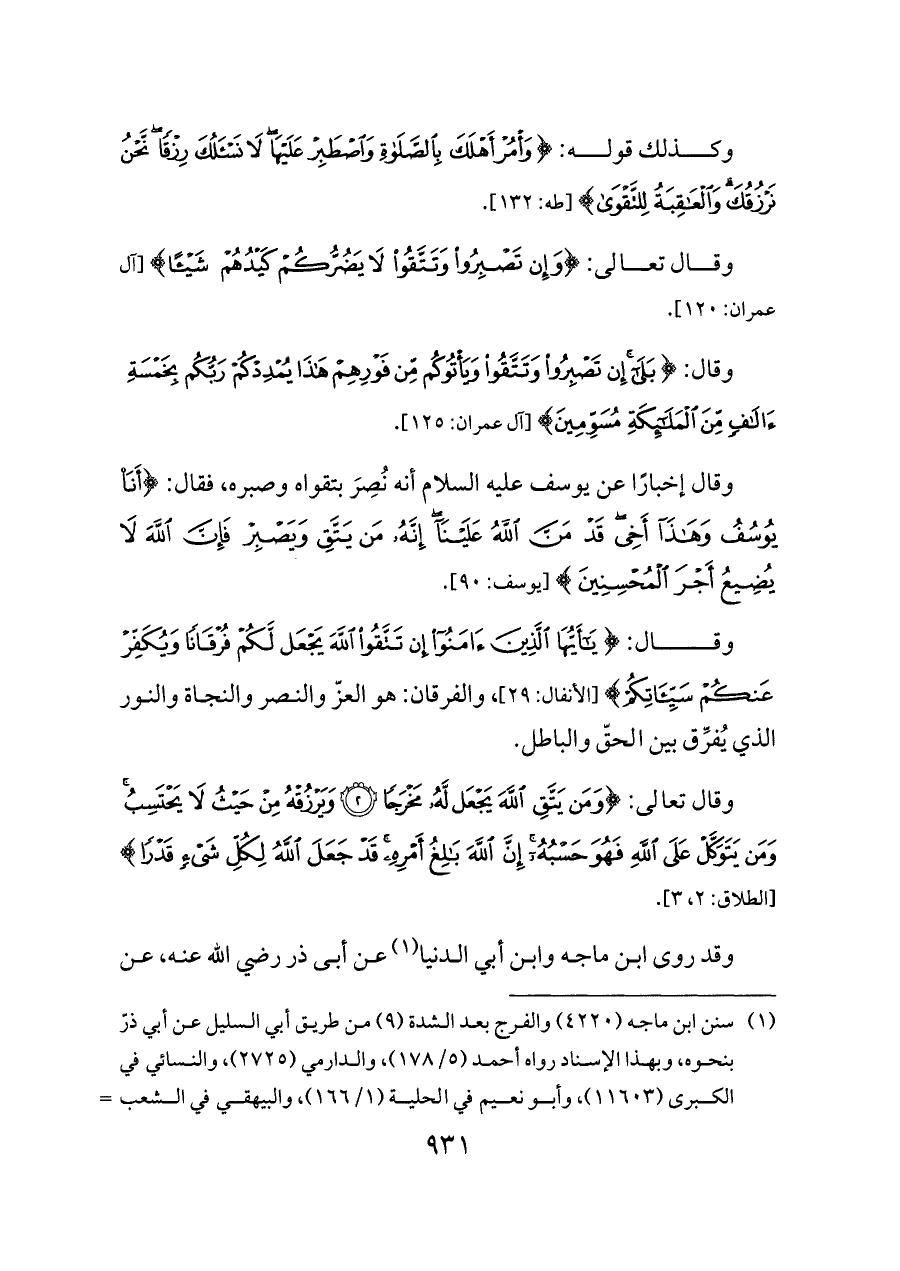 وكذلك قوله: ﴿وَأْمُرْ أَهْلَكَ بِالصَّلَوٰةِ وَاصْطَبِرْ عَلَيْهَا ۖ لَا نَسْـَٔلُكَ رِزْقًا ۖ نَّحْنُ
نَرْزُقُكَ ۗ وَالْعَـٰقِبَةُ لِلتَّقْوَىٰ﴾ [طه: ١٣٢].
وقال تعالى: ﴿وَإِن تَصْبِرُوا۟ وَتَتَّقُوا۟ لَا يَضُرُّكُمْ كَيْدُهُمْ شَيْـًٔا﴾ [آل
عمران: ١٢٠].
وقال: ﴿بَلَىٰٓ ۚ إِن تَصْبِرُوا۟ وَتَتَّقُوا۟ وَيَأْتُوكُم مِّن فَوْرِهِمْ هَـٰذَا يُمْدِدْكُمْ رَبُّكُم بِخَمْسَةِ
ءَالَـٰفٍ مِّنَ الْمَلَـٰٓئِكَةِ مُسَوِّمِينَ﴾ [آل عمران: ١٢٥].
وقال إخبارًا عن يوسف عليه السلام أنه نُصِرَ بتقواه وصبره، فقال: ﴿أَنَا۠
يُوسُفُ وَهَـٰذَآ أَخِى ۖ قَدْ مَنَّ اللَّهُ عَلَيْنَآ ۖ إِنَّهُۥ مَن يَتَّقِ وَيَصْبِرْ فَإِنَّ اللَّهَ لَا
يُضِيعُ أَجْرَ الْمُحْسِنِينَ﴾ [يوسف: ٩٠].
وقال: ﴿يَـٰٓأَيُّهَا الَّذِينَ ءَامَنُوٓا۟ إِن تَتَّقُوا۟ اللَّهَ يَجْعَل لَّكُمْ فُرْقَانًا وَيُكَفِّرْ
عَنكُمْ سَيِّـَٔاتِكُمْ﴾ [الأنفال: ٢٩]، والفرقان: هو العزّ والنصر والنجاة والنور
الذي يُفرِّق بين الحقّ والباطل.
وقال تعالى: ﴿وَمَن يَتَّقِ اللَّهَ يَجْعَل لَّهُۥ مَخْرَجًا ۝٢ وَيَرْزُقْهُ مِنْ حَيْثُ لَا يَحْتَسِبُ ۚ
وَمَن يَتَوَكَّلْ عَلَى اللَّهِ فَهُوَ حَسْبُهُۥٓ ۚ إِنَّ اللَّهَ بَـٰلِغُ أَمْرِهِۦ ۚ قَدْ جَعَلَ اللَّهُ لِكُلِّ شَىْءٍ قَدْرًا﴾
[الطلاق: ٢، ٣].
وقد روى ابن ماجه وابن أبي الدنيا(١) عن أبى ذر رضي الله عنه، عن
(١) سنن ابن ماجه (٤٢٢٠) والفرج بعد الشدة (٩) من طريق أبي السليل عن أبي ذرّ
بنحوه، وبهذا الإسناد رواه أحمد (٥/ ١٧٨)، والدارمي (٢٧٢٥)، والنسائي في
الكبرى (١١٦٠٣)، وأبو نعيم في الحلية (١/ ١٦٦)، والبيهقي في الشعب =
٩٣١